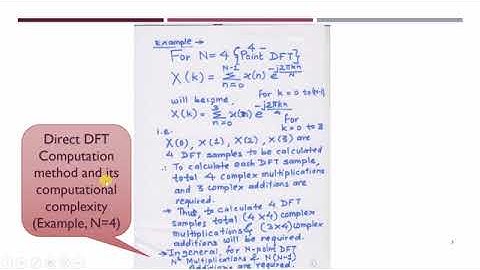 Example →
For N=4 {4-Point DFT}
X(k) = Σ x(n) e^-j2πkn/N
N-1
n=0
will become, for k = 0 to (N-1)
X(k) = Σ x(n) e^-j2πkn/4
3
n=0
For k = 0 to 3
i.e.
X(0), X(1), X(2), X(3) are
4 DFT samples to be calculated
∴ To calculate each DFT sample,
total 4 complex multiplications
and 3 complex additions are
required.
→ Thus, to calculate 4 DFT
samples total (4x4) complex
multiplications & (3x4) complex
additions will be required.
→ In general, for N-point DFT
N² Multiplications & N(N-1)
Additions are required.
Direct DFT
Computation
method and its
computational
complexity
(Example, N=4)